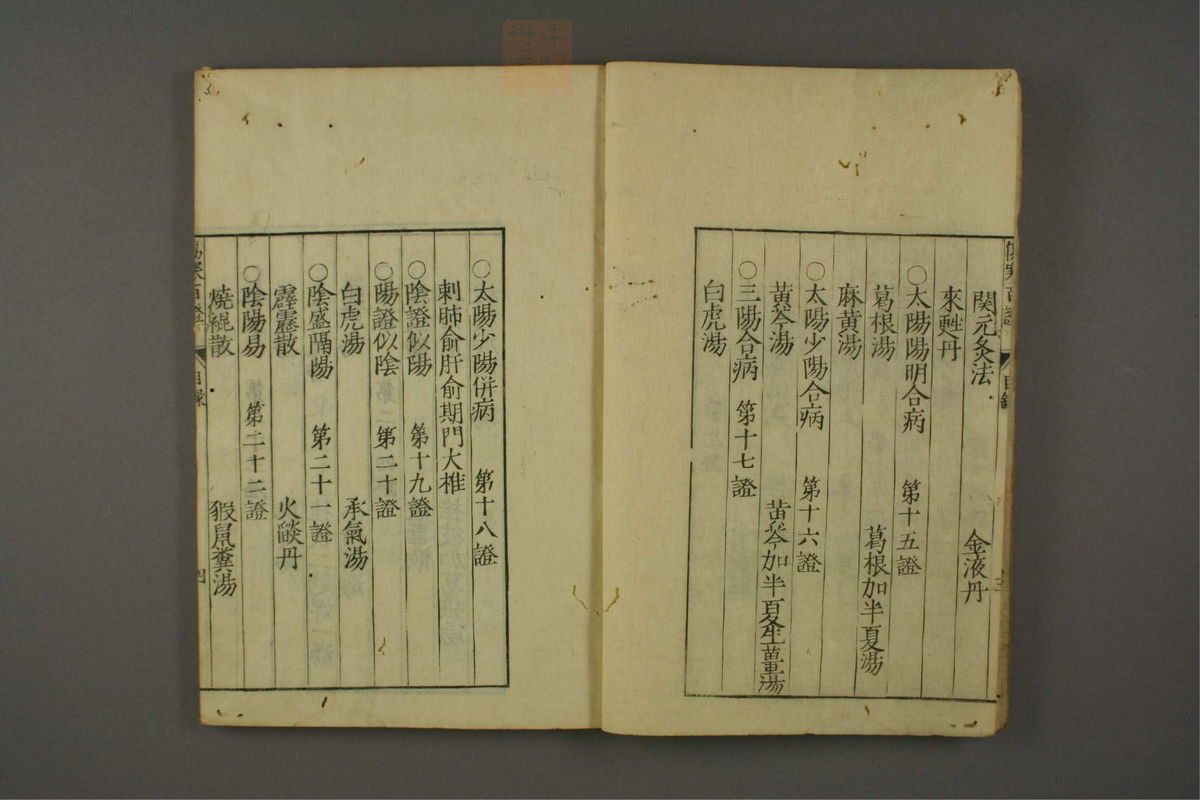 関元灸法　金液丹
來甦丹
○太陽陽明合病　第十五證
葛根湯　葛根加半夏湯
麻黄湯
○太陽少陽合病　第十六證
黄芩湯　黄芩加半夏生薑湯
○三陽合病　第十七證
白虎湯
○太陽少陽併病　第十八證
刺肺俞肝俞期門大椎
○陰證似陽　第十九證
○陽證似陰　第二十證
白虎湯　承氣湯
○陰盛隔陽　第二十一證
霹靂散　火燄丹
○陰陽易　第二十二證
燒裩散　豭鼠糞湯
目録
四